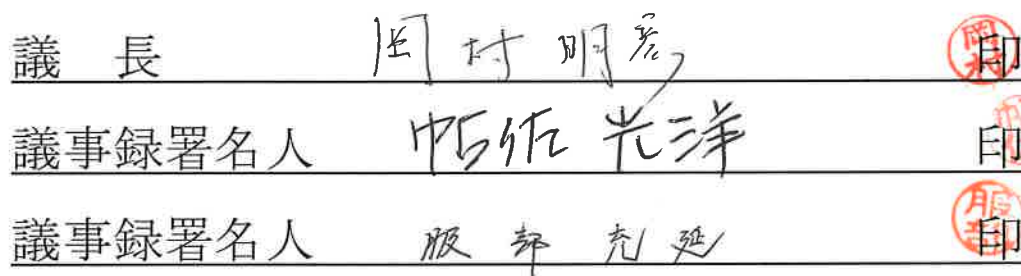 議 長 岡村明彦 印
議事録署名人 帖佐光洋 印
議事録署名人 服部充延 印